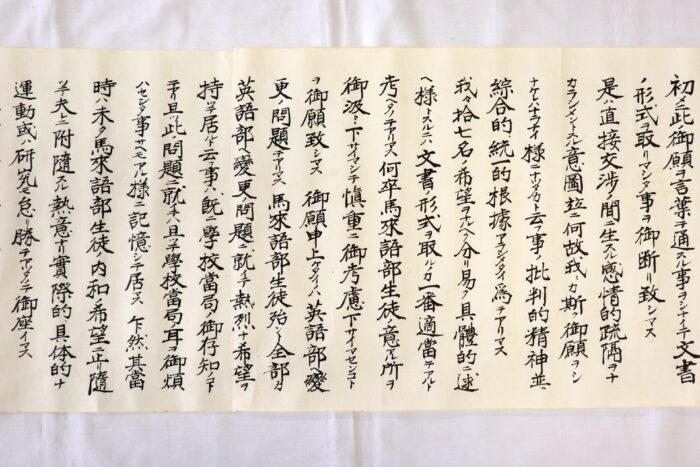 初メニ此御願ヲ言葉ヲ通スル事ヲシナイデ文書
ノ形式ヲ取リマシタ事ヲ御断リ致シマス
是ハ直接交渉ノ間ニ生ズル感情的疏隔ヲナ
カラシメントスル意図並ニ何故我々ガ斯ル御願ヲシ
ナケレバナラナイ様ニナツタカト云フ事ノ批判的精神並ニ
綜合的統一的根據ヲアラシメタイ爲デアリマス
我々拾七名ノ希望ヲ分リ易ク具體的ニ述
ベ様トスルニハ文書ノ形式ヲ取ルノガ一番適當デアルト
考ヘタノデアリマス何卒馬來語部生徒ノ意アル所ヲ
御汲ミ下サイマシテ慎重ニ御考慮下サイマセンコト
ヲ御願致シマス 御願申上ゲタイノハ英語部ヘ變
更ノ問題デアリマス 馬來語部生徒殆ンド全部ガ
英語部ヘ變更ノ問題ニ就イテ熱烈ナ希望ヲ
持ツテ居ルト云フ事ハ既ニ學校當局ノ御存知ノコト
デアリ且ツ此問題ニ就イテハ且テ學校當局ノ耳ヲ御煩
ハセシタ事サヘモアル様ニ記憶シテ居マス 乍然其當
時ハ未ダ馬來語部生徒ノ内和ノ希望ニ止リ隨
ツテ夫レニ附隨スル熱意ナリ實際的具体的ナ
運動或ハ研究モ怠リ勝デアツタノデ御座イマス